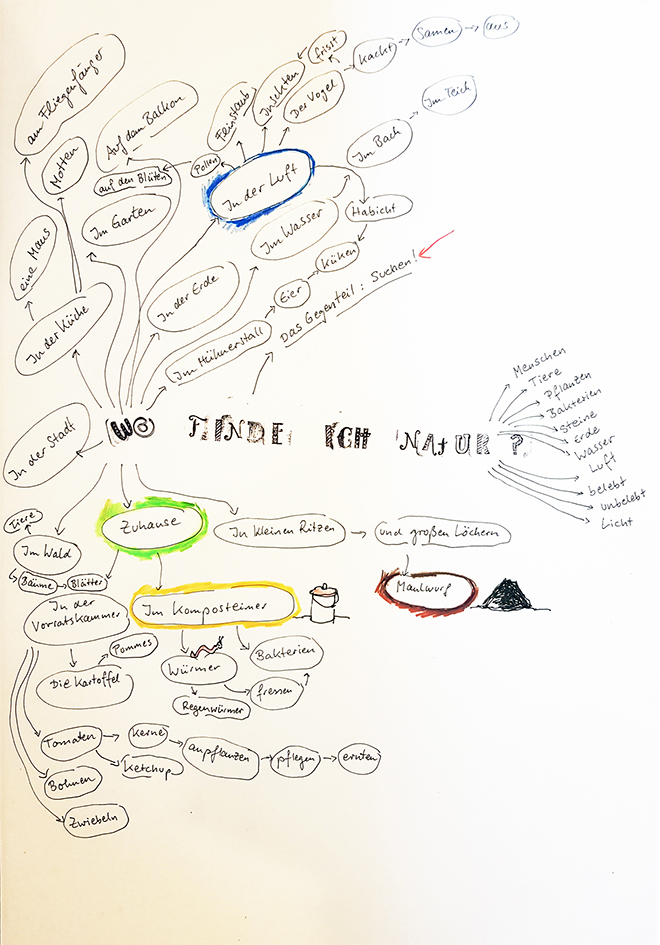 am Fliegenfänger
Motten
eine Maus
In der Küche
Auf dem Balkon
auf den Blüten
Im Garten
Pollen
Feinstaub
Insekten
frisst
Der Vogel
kackt
Samen
aus
In der Luft
Im Bach
Im Teich
Im Wasser
Habicht
In der Erde
Küken
Eier
Im Hühnerstall
Das Gegenteil: Suchen!
In der Stadt
WO FINDE ICH NATUR ?
Menschen
Tiere
Pflanzen
Bakterien
Steine
Erde
Wasser
Luft
belebt
unbelebt
Licht
Tiere
Im Wald
Bäume
Blätter
Zuhause
In kleinen Ritzen
und großen Löchern
Maulwurf
In der
Vorratskammer
Im Komposteimer
Pommes
Die Kartoffel
Würmer
Bakterien
Regenwürmer
fressen
Tomaten
Kerne
Ketchup
anpflanzen
pflegen
ernten
Bohnen
Zwiebeln